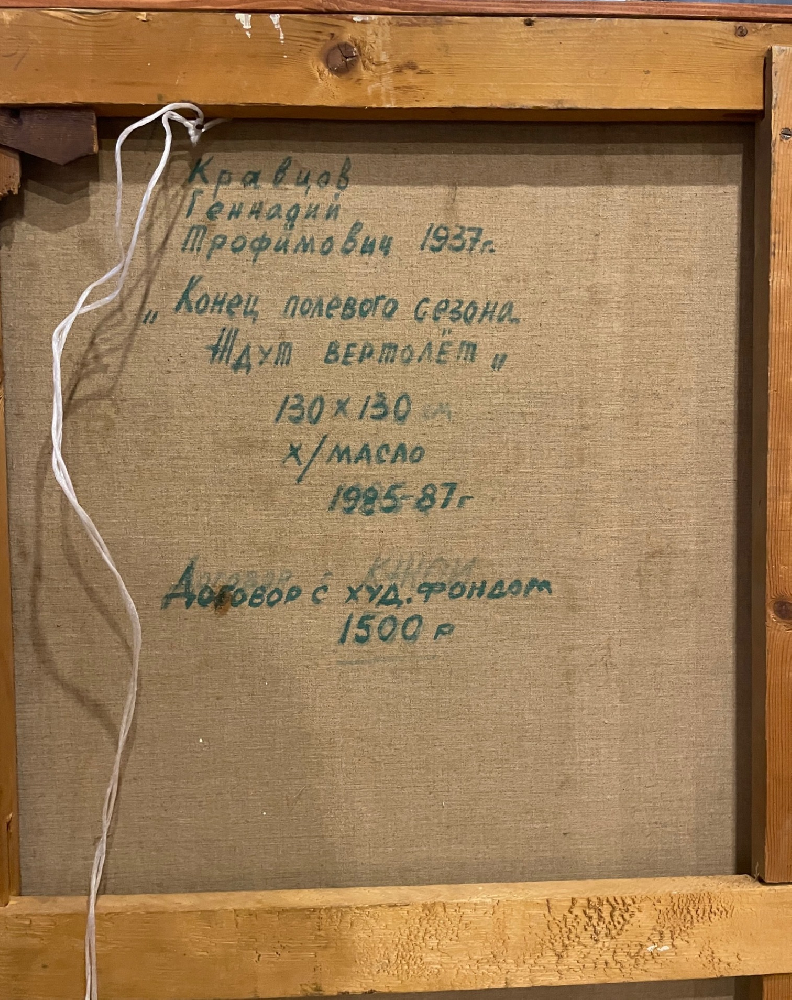 Кравцов
Геннадий
Трофимович 1937г.
„ Конец полевого сезона
Ждут вертолёт „
130 x 130 см
х/масло
1985-87г
Договор с худ. фондом
1500 р